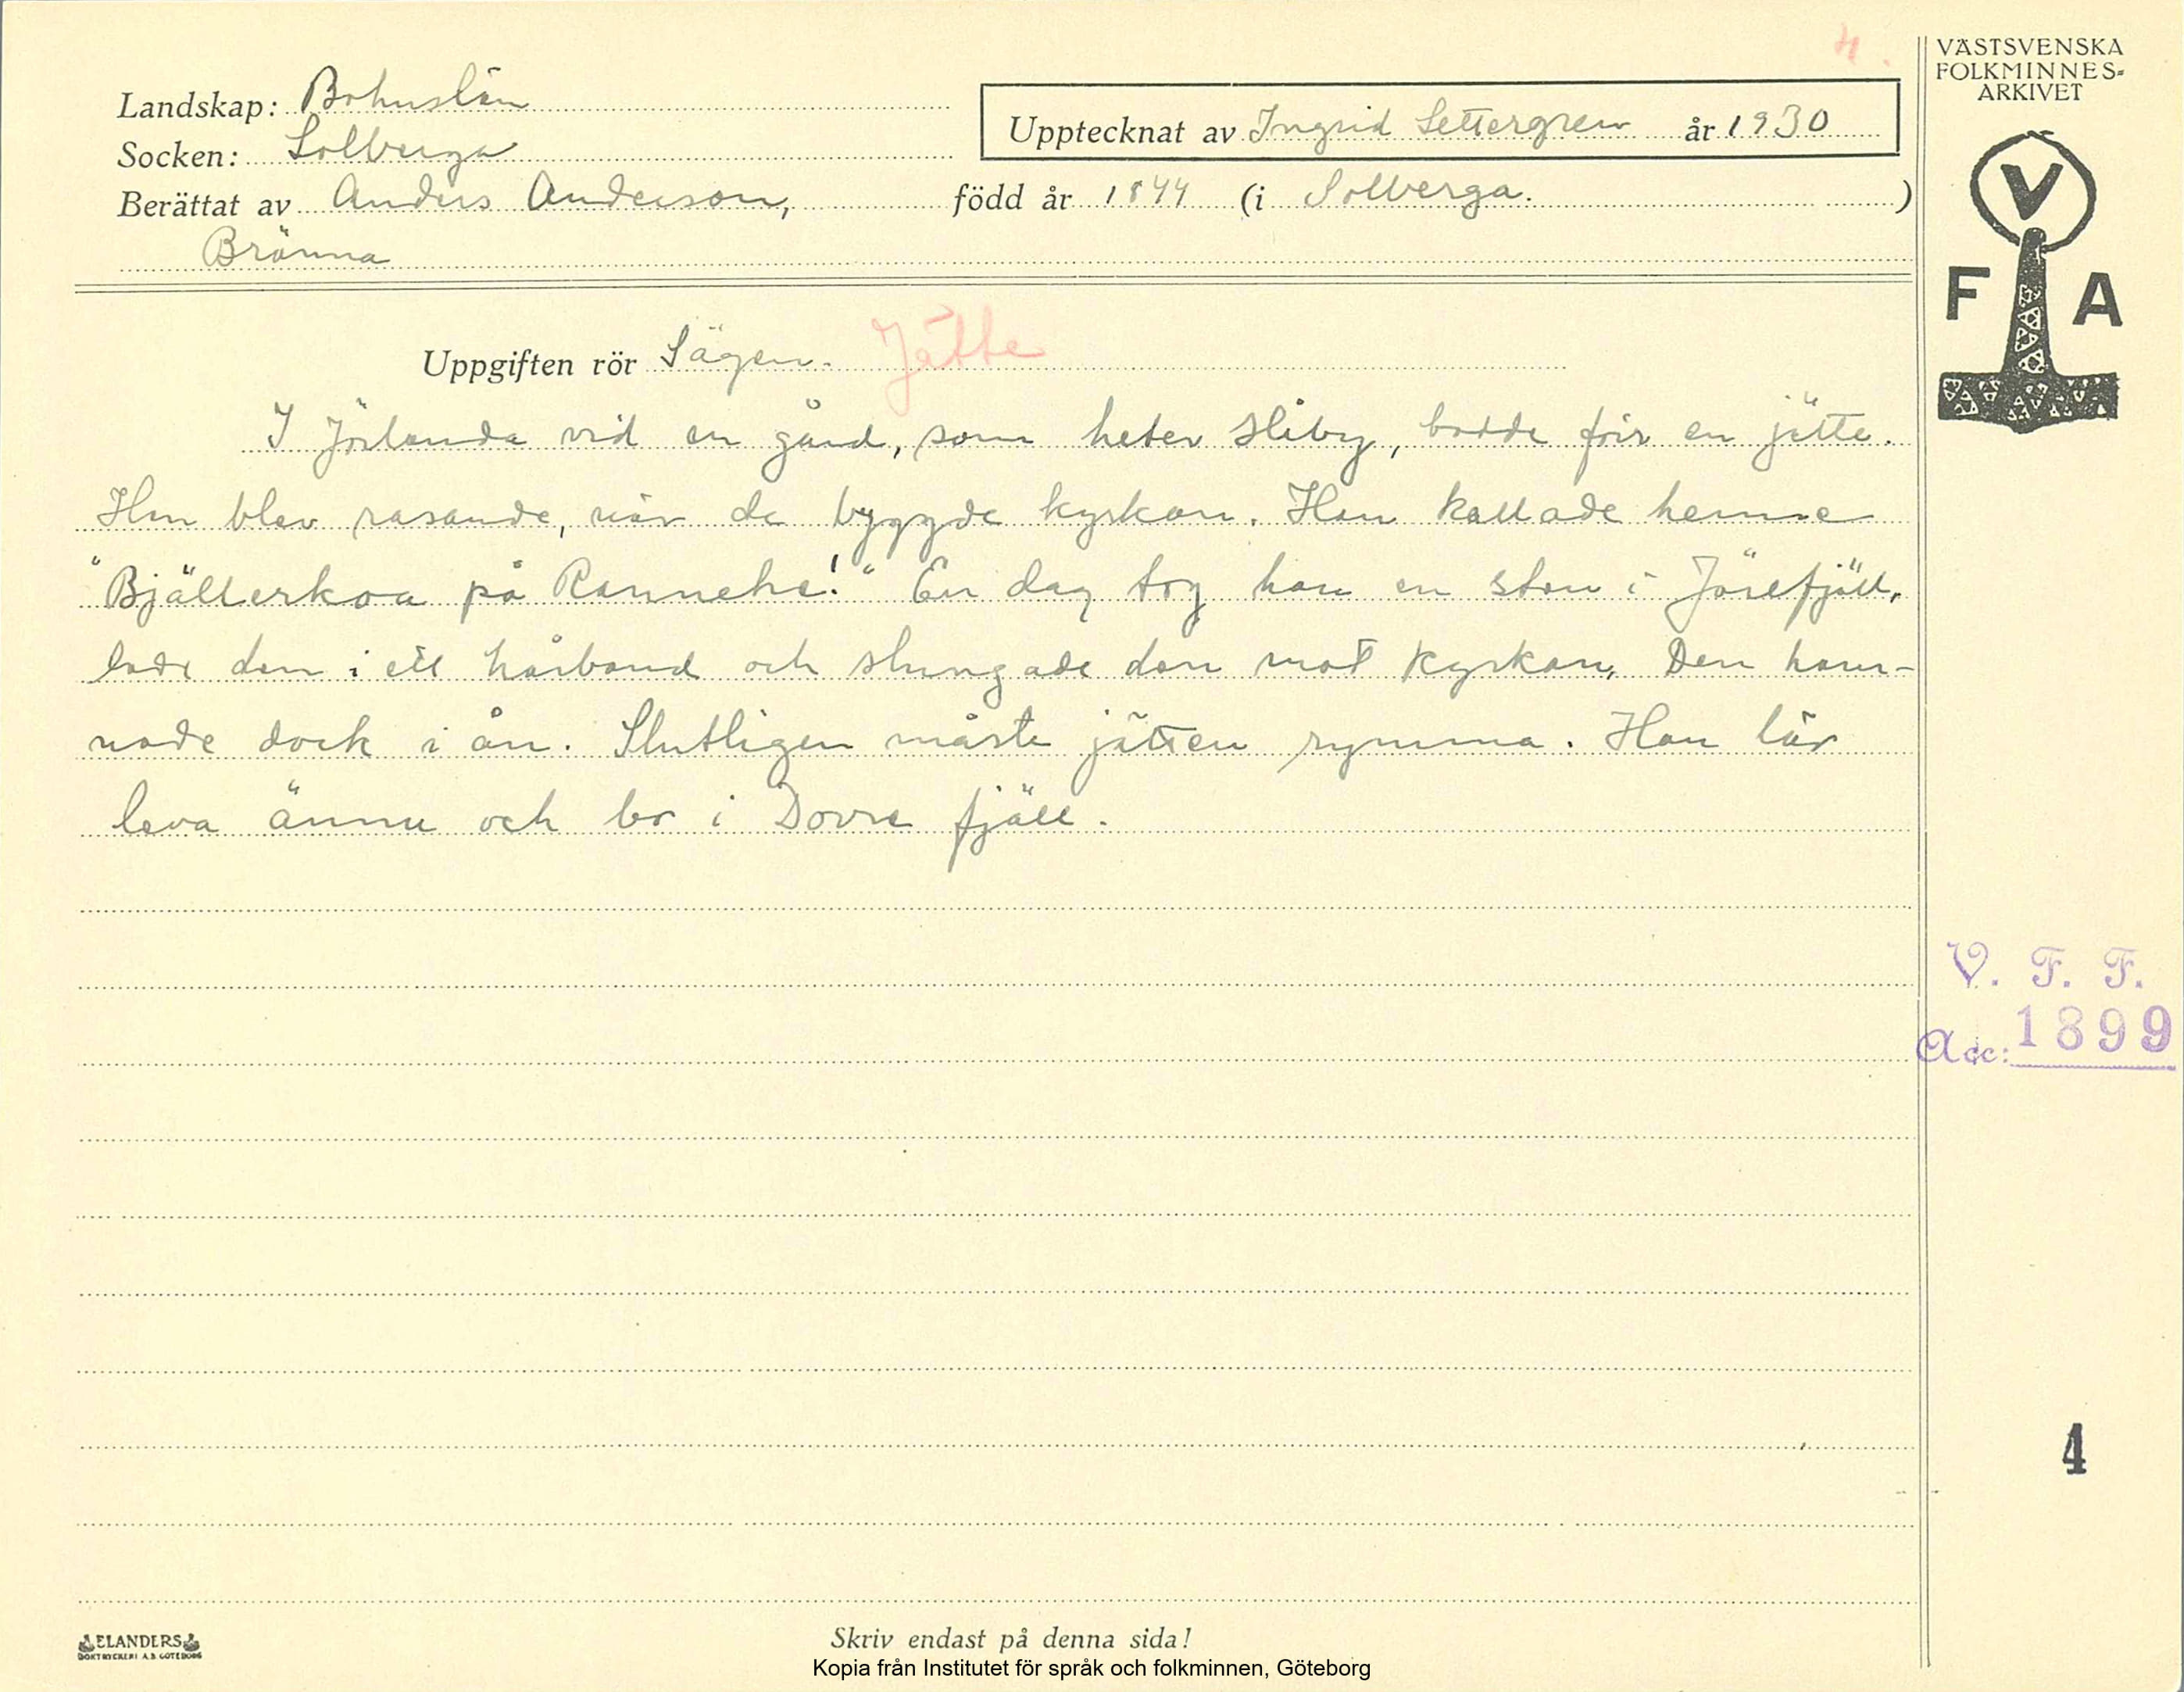 4.
VÄSTSVENSKA
FOLKMINNES-
ARKIVET
Landskap: Bohuslän
Upptecknat av Ingrid Settergren år 1930
Socken: Solberga
Berättat av Anders Anderson, född år 1844 (i Solberga. )
Bränna
V
F A
Uppgiften rör Sägen. Jätte
I Jörlanda vid en gård, som heter Sliby, bodde förr en jätte.
Han blev rasande, när de byggde kyrkan. Han kallade henne
"Bjällerkoa på Rannehe!" En dag tog han en sten i Jörefjäll,
lade den i ett hårband och slungade den mot kyrkan. Den ham-
nade dock i ån. Slutligen måste jätten rymma. Han lär
leva ännu och bor i Dovre fjäll.
V. F. F.
Acc: 1899
4
ELANDERS
BOKTRYCKERI A.B. GÖTEBORG
Skriv endast på denna sida!
Kopia från Institutet för språk och folkminnen, Göteborg